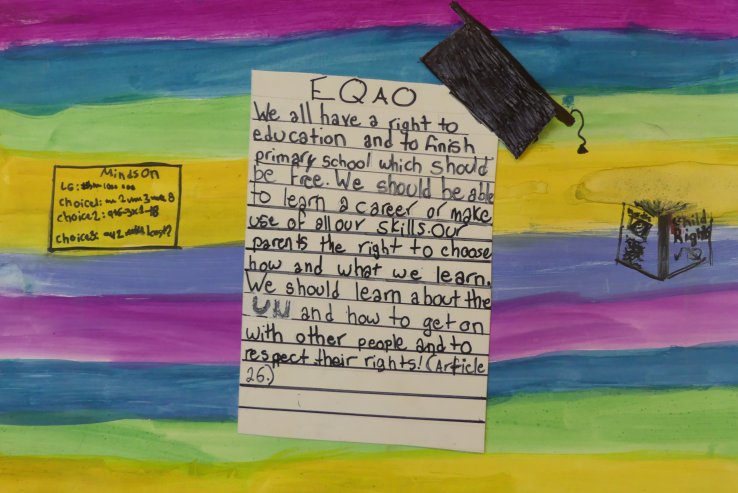 EQAO
We all have a right to
education and to finish
primary school which should
be free. We should be able
to learn a career or make
use of all our skills. Our
parents the right to choose
how and what we learn.
We should learn about the
UN and how to get on
with other people and to
respect their rights! (Article
26.)
Minds On
LG:
choice1:
choice2:
choice3:
Child
Rights